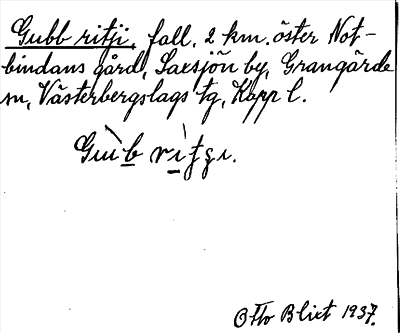 Gubb ritji, fall, 2 km. öster Not-
bindans gård, Saxsjön by, Grangärde
sn, Västerbergslags tg, Kopp l.
Otto Blixt 1937.